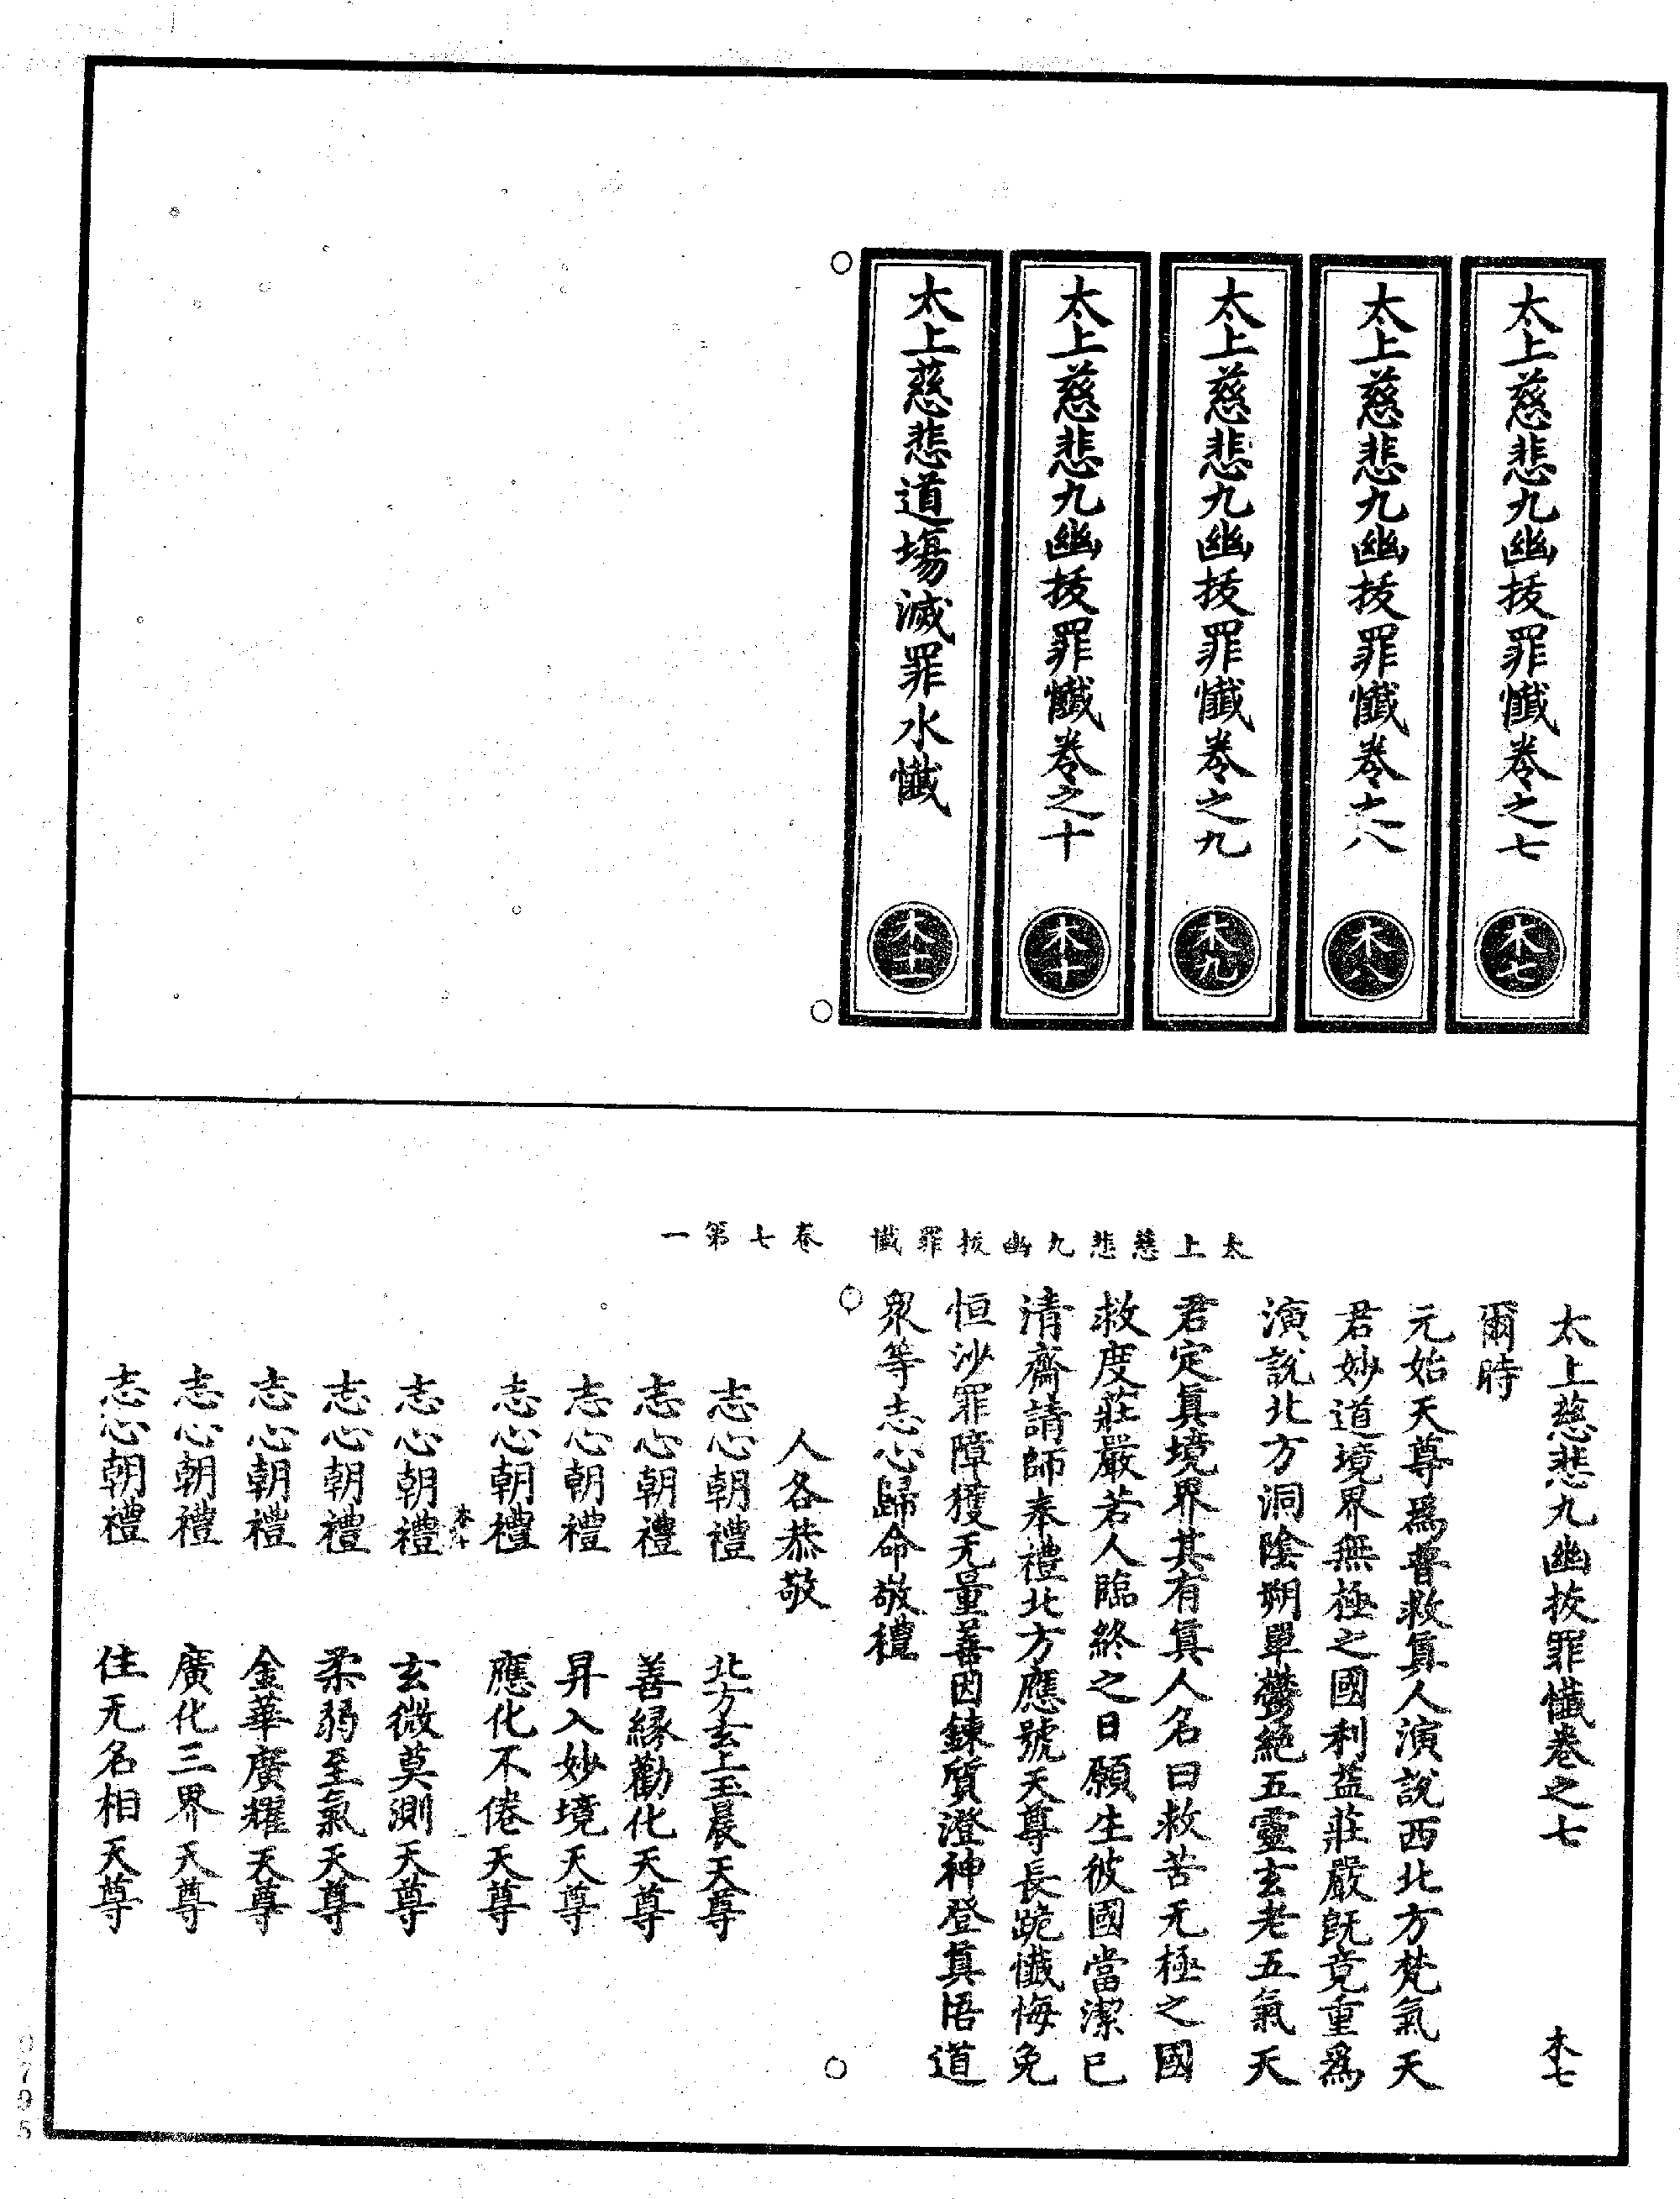 太上慈悲九幽拔罪懺卷之七
木七
太上慈悲九幽拔罪懺卷之八
木八
太上慈悲九幽拔罪懺卷之九
木九
太上慈悲九幽拔罪懺卷之十
木十
太上慈悲道場滅罪水懺
木十一
太上慈悲九幽拔罪懺 卷七第一
太上慈悲九幽拔罪懺卷之七 木七
爾時
元始天尊爲普救真人演說西北方梵氣天
君妙道境界無極之國利益莊嚴既竟重爲
演說北方洞陰朔單鬱絕五靈玄老五氣天
君定真境界其有真人名曰救苦无極之國
救度莊嚴若人臨終之日願生彼國當潔己
清齋請師奉禮北方應號天尊長跪懺悔免
恒沙罪障獲无量善因鍊質澄神登真悟道
衆等志心歸命敬禮
人各恭敬
志心朝禮 北方玄上玉晨天尊
志心朝禮 善緣勸化天尊
志心朝禮 昇入妙境天尊
志心朝禮 應化不倦天尊
志心朝禮 玄微莫測天尊
志心朝禮 柔弱至氣天尊
志心朝禮 金華廣耀天尊
志心朝禮 廣化三界天尊
志心朝禮 住无名相天尊
0795